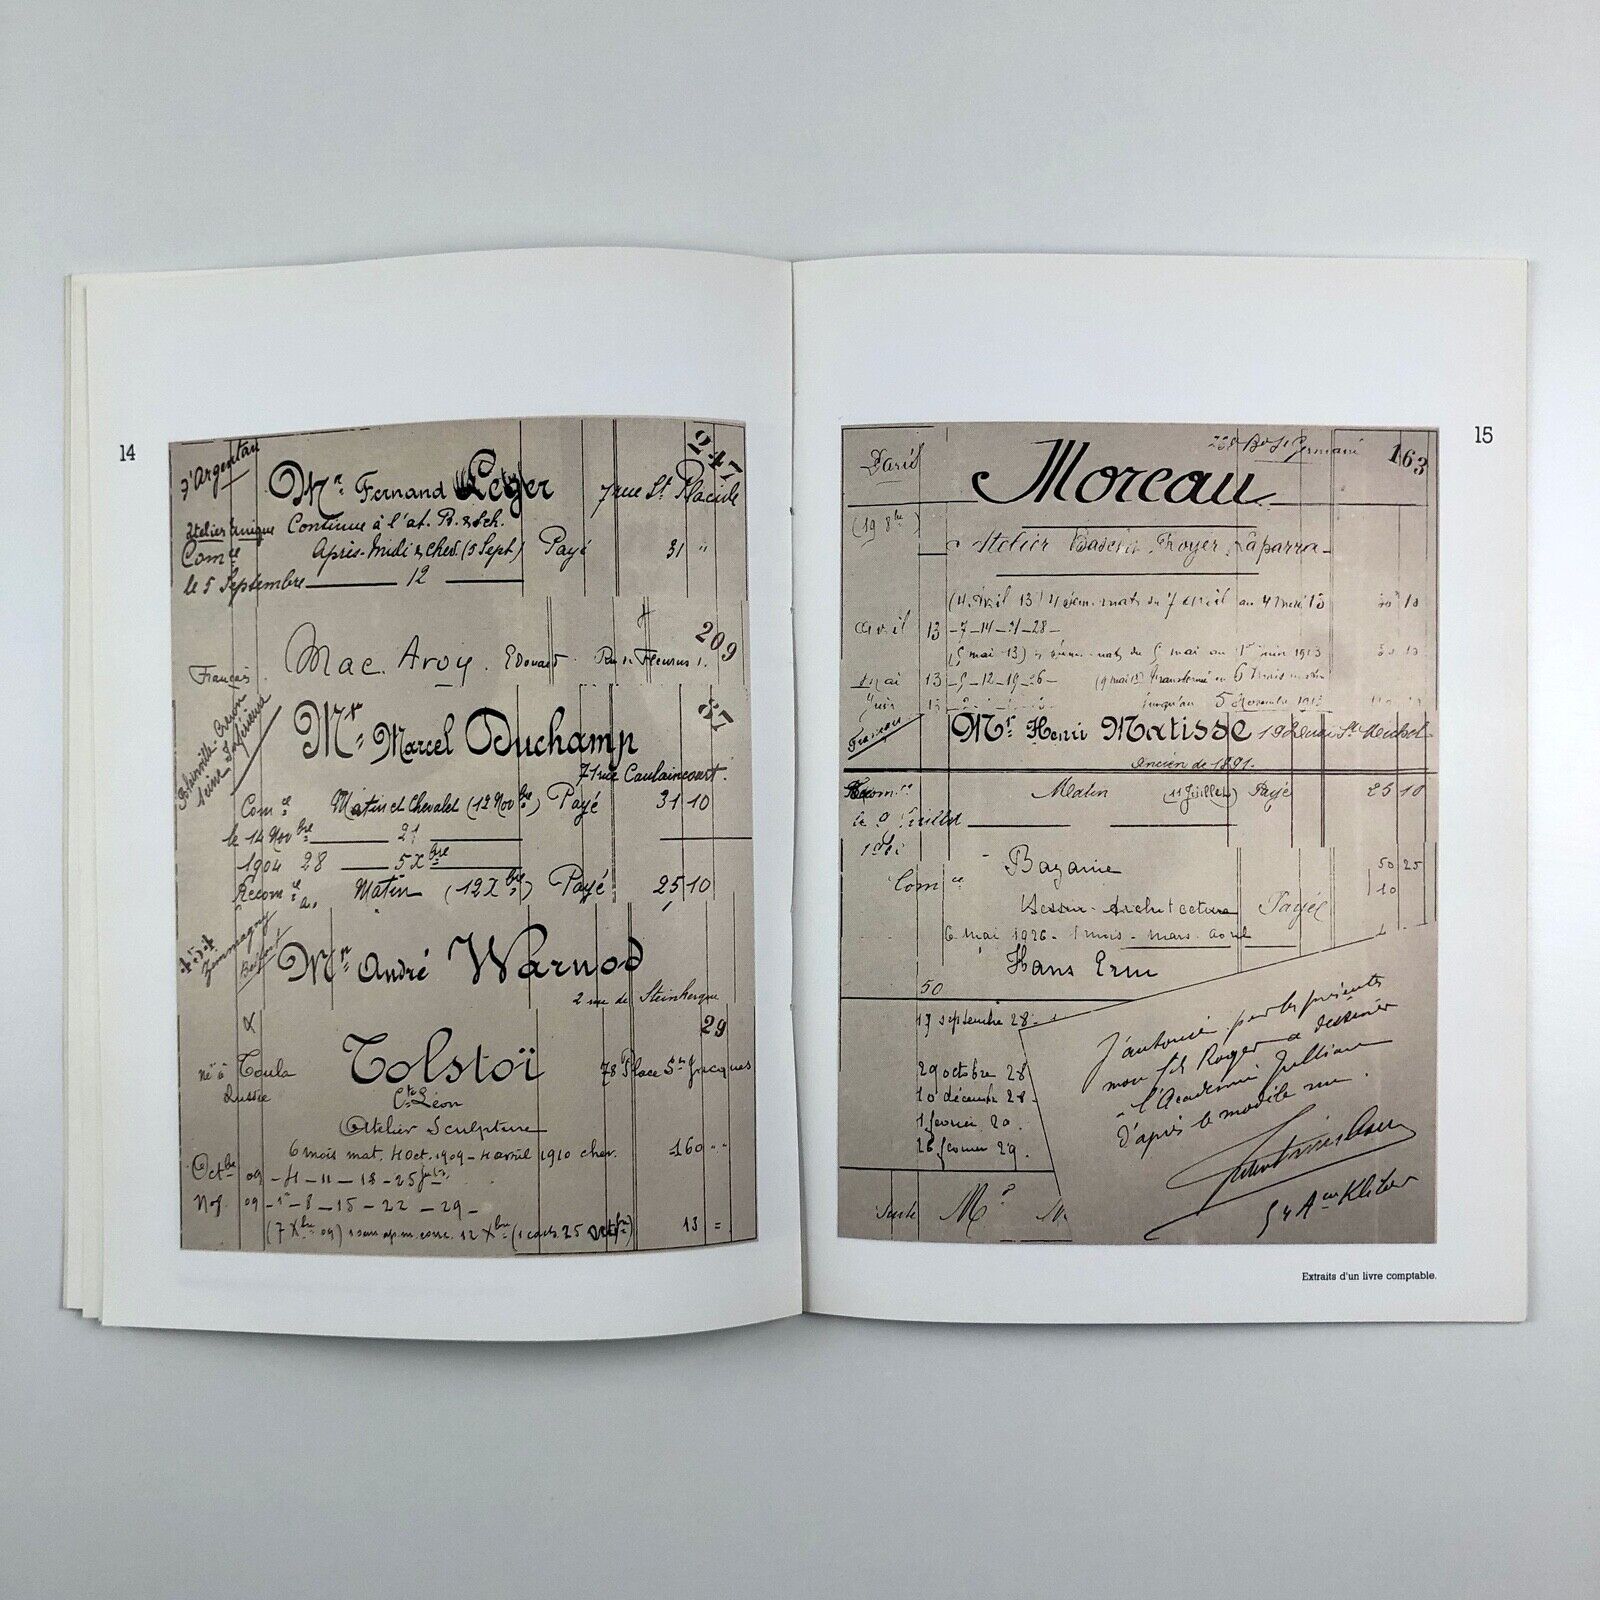 14
d'Argentan
Mr. Fernand Leger
247
7 rue St Placide
Atelier unique Continue à l'at. B. & Sch.
Comce Après-Midi & Chev. (5 Sept) Payé 31 "
le 5 Septembre 12
209
Mac. Avoy. Edouard Fleurus
Français
87
Mr. Marcel Duchamp
Seine Inférieure
71 rue Caulaincourt.
Comce Matin et Chevalet (12 Nov bre) Payé 31 10
le 14 Nov bre 21
1904 28 5 X bre
Recomce Matin (12 X bre) Payé 25 10
454
Mr. André Warnod
2 rue de Steinkerque
29
Tolstoï
né à Toula 78 Place St Jacques
Russie
Cte Léon
Atelier Sculpture
6 mois mat. 4 Oct. 1909 - 4 avril 1910 chev. 160 " "
Octbre 09 - 4 - 11 - 18 - 25
Nov. 09 - 1 - 8 - 15 - 22 - 29 -
(7 X bre 09) 12 X bre 25 13 =
15
Paris 228 Bd St Germain 163
Moreau
Atelier Royer Laparra
(4 Avril 13) 4 sem. mat. du 7 avril au 4 mai 13
avril 13 - 7 - 14 - 21 - 28 -
(5 mai 13) mat. du 5 mai au 1er juin 1913
mai 13 - 5 - 12 - 19 - 26 - (9 mai 13) transformé en 6 mois
Juin 13 jusqu'au 5 Novembre 1913
Français
Mr. Henri Matisse 19 St Michel
ancien de 1891.
Matin (11 Juillet) Payé 25 10
le 9 Juillet
Bazaine 50 25
Comce 10
Dessin - Architecture Payé
6 mai 1926 - 1 mois - mars. avril
Hans Erni
50
17 septembre 28.
29 octobre 28
10 décembre 28
1 février
26 février 29.
Suite M
J'autorise par les présentes
mon fils Roger a dessiner
à l'Académie Jullian
d'après le modèle nu.
54 Aue Kléber
Extraits d'un livre comptable.